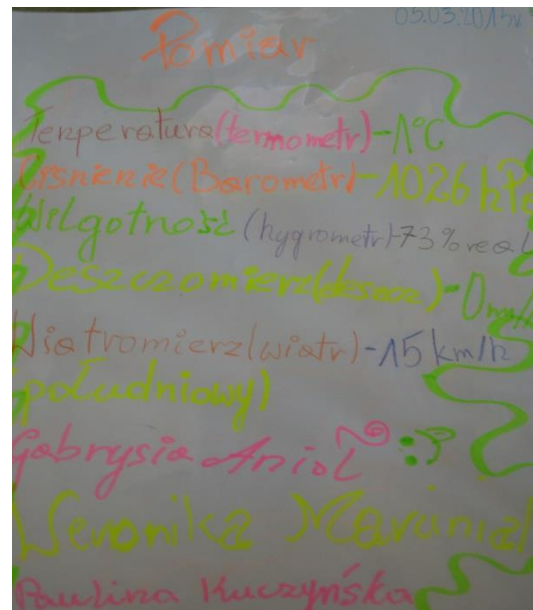 05.03.2015r
Pomiar
Temperatura (termometr)-1°C
Ciśnienie (Barometr)-1026 hPa
Wilgotność (hygrometr)-73%
Deszczomierz (deszcz)-0
Wiatromierz (wiatr)-15 km/h
południowy)
Gabrysia Anioł
Weronika
Paulina Kuczyńska